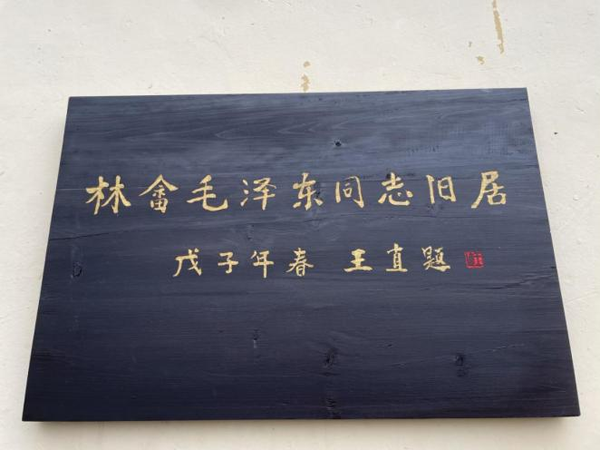 林畲毛泽东同志旧居
戊子年春 王直题